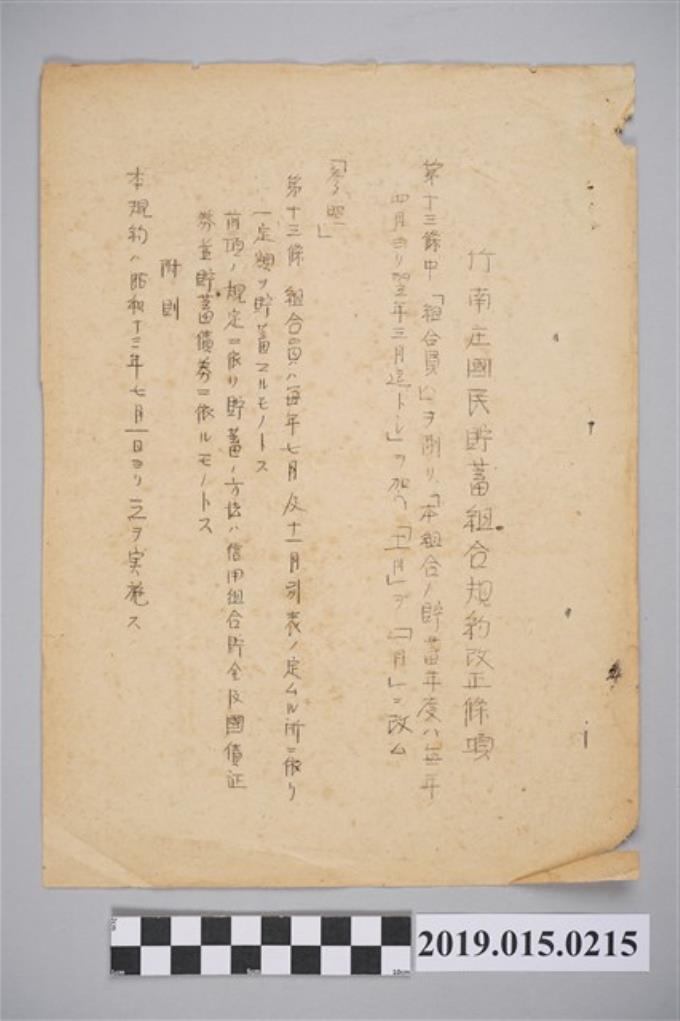 竹南庄國民貯蓄組合規約改正條項
第十三條中「組合員ハ」ヲ削リ、「本組合ノ貯蓄年度ハ毎年
四月ヨリ翌年三月迄トシ」ヲ加ヘ「十一月」ヲ「一月」ニ改ム
「參照」
第十三條 組合員ハ毎年七月及十一月別表ノ定ムル所ニ依リ
一定額ヲ貯蓄スルモノトス
前項ノ規定ニ依リ貯蓄ノ方法ハ信用組合貯金及國債証
券並貯蓄債券ニ依ルモノトス
附則
本規約ハ昭和十三年七月一日ヨリ之ヲ実施ス
5cm
10cm
2019.015.0215